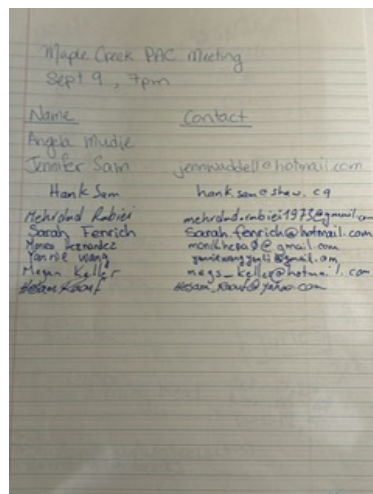 Maple Creek PAC Meeting
Sept 9, 7pm
Name Contact
Angela Mudie
Jennifer Sam jennwaddell@hotmail.com
Hank Sam hank.sam@shaw.ca
Mehrdad Rabiei mehrdad.rabiei1973@gmail.com
Sarah Fenrich Sarah.fenrich@hotmail.com
Hernandez @gmail.com
Wang @gmail.com
Megan Keller megs_keller@hotmail.com
Hesam Raouf Hesam_Raouf@yahoo.com